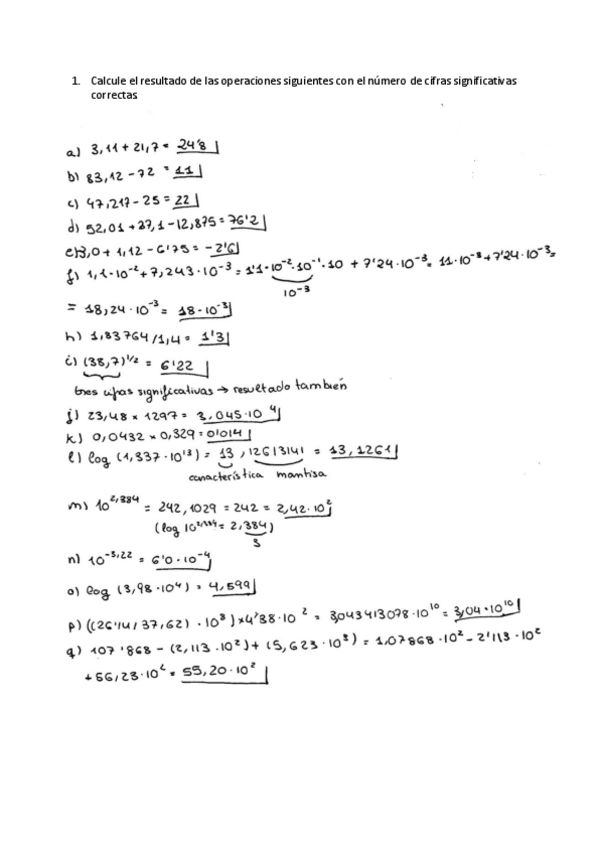 1. Calcule el resultado de las operaciones siguientes con el número de cifras significativas
correctas
a) 3,11 + 21,7 = 24'8
b) 83,12 - 72 = 11
c) 47,217 - 25 = 22
d) 52,01 + 37,1 - 12,875 = 76'2
e) 3,0 + 1,12 - 6'75 = -2'6
f) 1,1·10⁻² + 7,243·10⁻³ = 1'1·10⁻²·10⁻¹·10 + 7'24·10⁻³ = 11·10⁻³ + 7'24·10⁻³ =
10⁻³
= 18,24·10⁻³ = 18·10⁻³
h) 1,83764/1,4 = 1'3
i) (38,7)^1/2 = 6'22
tres cifras significativas → resultado también
j) 23,48 × 1297 = 3,045·10⁴
k) 0,0432 × 0,329 = 0'014
l) log (1,337·10¹³) = 13,12613141 = 13,1261
característica mantisa
m) 10^2,384 = 242,1029 = 242 = 2,42·10²
(log 10^2,384 = 2,384)
3
n) 10^-3,22 = 6'0·10⁻⁴
o) log (3,98·10⁴) = 4,599
p) ((26'14/37,62)·10⁸) × 4'38·10² = 3,043413078·10¹⁰ = 3,04·10¹⁰
q) 107'868 - (2,113·10²) + (5,623·10³) = 1,07868·10² - 2'113·10²
+ 56,23·10² = 55,20·10²